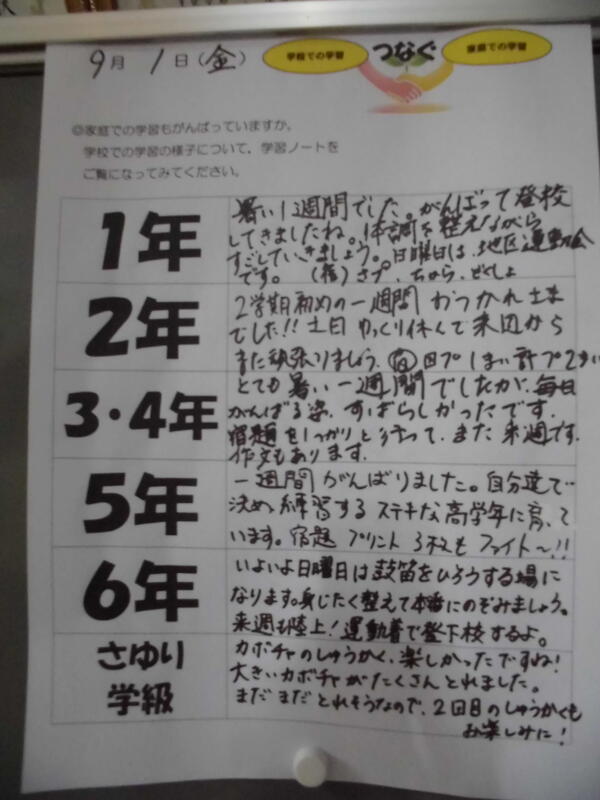 9月 1日(金)
学校での学習 つなぐ 家庭での学習
◎家庭での学習もがんばっていますか。
学校での学習の様子について、学習ノートを
ご覧になってみてください。
1年
暑い1週間でした。がんばって登校
してきましたね。体調を整えながら
すごしていきましょう。日曜日は、地区運動会
です。(宿)さプ、ちゅら、どくしょ
2年
2学期初めの一週間 おつかれさま
でした!! 土日 ゆっくり休んで来週から
また頑張りましょう。 宿 日プ1まい 計プ2まい
3・4年
とても暑い一週間でしたが、毎日
がんばる姿、すばらしかったです。
宿題をしっかりと行って、また来週です。
作文もあります。
5年
一週間がんばりました。自分達で
決め練習するステキな高学年に育って
います。宿題 プリント3枚もファイト〜!!
6年
いよいよ日曜日は鼓笛をひろうする場に
なります。身じたく整えて本番にのぞみましょう。
来週も陸上!運動着で登下校するよ。
さゆり
学級
カボチャのしゅうかく、楽しかったですね!
大きいカボチャがたくさんとれました。
まだまだとれそうなので、2回目のしゅうかくも
お楽しみに!